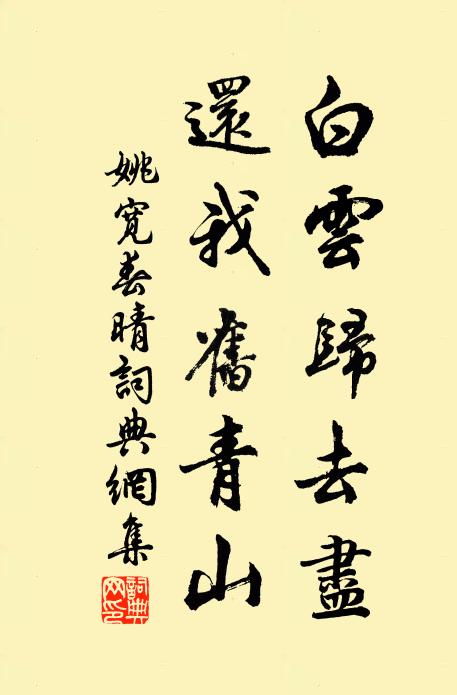 白雲歸去盡
還我舊青山
姚寬春晴詞典網集
詞典网印